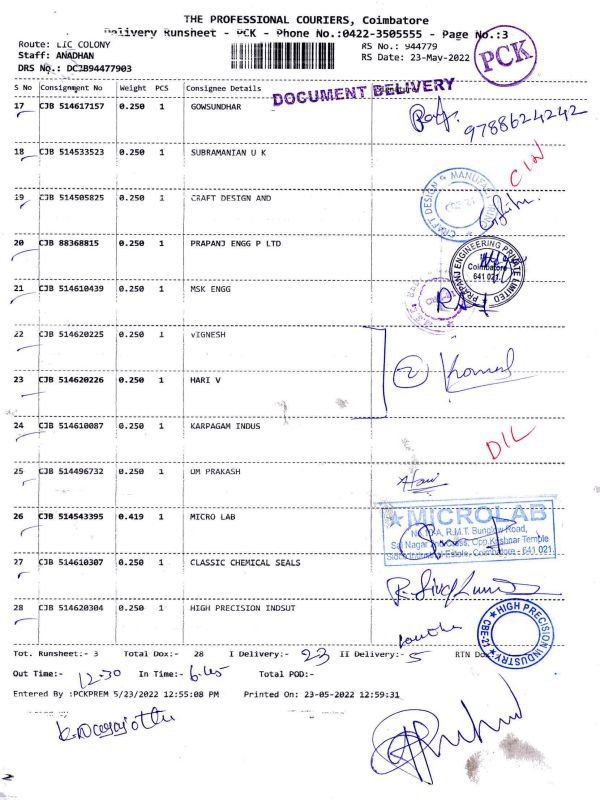 THE PROFESSIONAL COURIERS, Coimbatore
Delivery Runsheet - PCK - Phone No.:0422-3505555 - Page No.:3
Route: LIC COLONY
RS No.: 944779
Staff: ANADHAN
RS Date: 23-May-2022
DRS No.: DCJB94477903
PCK
DOCUMENT DELIVERY
S No Consignment No Weight PCS Consignee Details
17 CJB 514617157 0.250 1 GOWSUNDHAR
9788624242
18 CJB 514533523 0.250 1 SUBRAMANIAN U K
19 CJB 514505825 0.250 1 CRAFT DESIGN AND
CRAFT DESIGN & MANUFACTURING
CBE-21
20 CJB 88368815 0.250 1 PRAPANJ ENGG P LTD
PRAPANJ ENGINEERING PRIVATE LIMITED
Coimbatore
641 021
21 CJB 514610439 0.250 1 MSK ENGG
22 CJB 514620225 0.250 1 vIGNESH
23 CJB 514620226 0.250 1 HARI V
2
24 CJB 514610087 0.250 1 KARPAGAM INDUS
D/L
25 CJB 514496732 0.250 1 OM PRAKASH
26 CJB 514543395 0.419 1 MICRO LAB
MICROLAB
R.M.T. Bunglow Road,
Sai Nagar Cross, Opp.Krishnar Temple
Sidco Industrial Estate, Coimbatore - 641 021.
27 CJB 514610307 0.250 1 CLASSIC CHEMICAL SEALS
28 CJB 514620304 0.250 1 HIGH PRECISION INDSUT
HIGH PRECISION INDUSTRY
CBE-21
Tot. Runsheet:- 3 Total Dox:- 28 I Delivery:- 23 II Delivery:- 5 RTN Dox
Out Time:- 12.30 In Time:- 6.45 Total POD:-
Entered By :PCKPREM 5/23/2022 12:55:08 PM Printed On: 23-05-2022 12:59:31